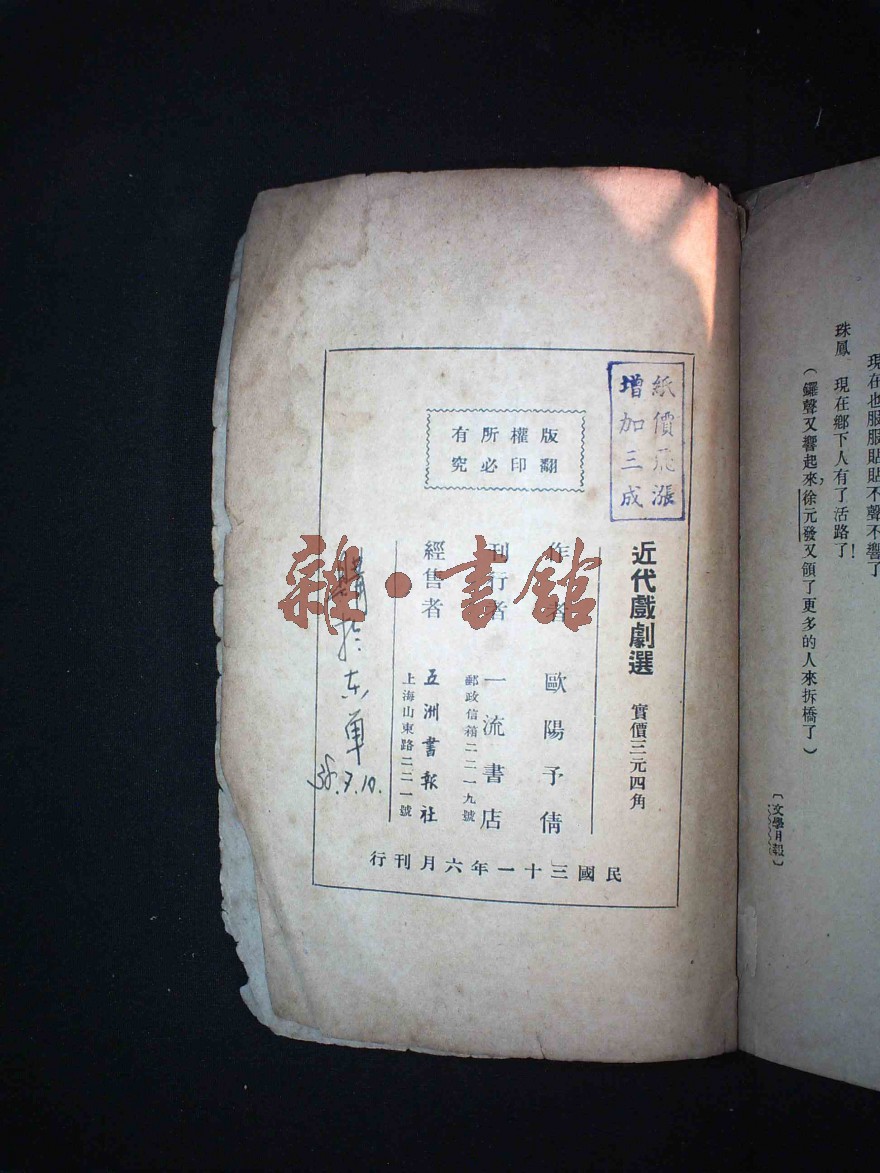 現在也服服貼貼不聲不響了
珠鳳 現在鄉下人有了活路了!
(鑼聲又響起來,徐元發又領了更多的人來拆橋了)
〔文學月報〕
紙價飛漲
增加三成
版權所有
翻印必究
近代戲劇選 實價三元四角
作者 歐陽予倩
刊行者 一流書店
郵政信箱二二一九號
經售者 五洲書報社
上海山東路二二一號
購於东單
38.7.10.
民國三十一年六月刊行
雜·書館